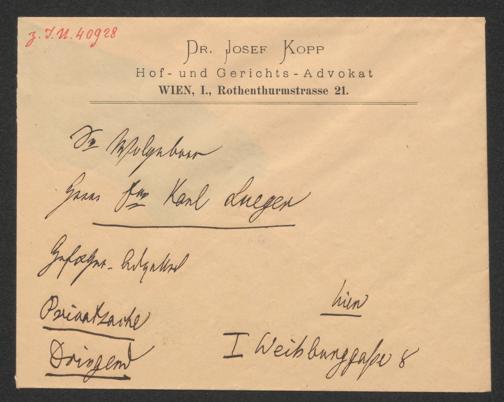 z. I.N. 40928
DR. JOSEF KOPP
Hof- und Gerichts-Advokat
WIEN, I., Rothenthurmstrasse 21.
Sr Wolgeboren
Herrn Dr Karl Lueger
Advokat
Privatsache
Wien
Dringend
I Weihburggaße 8